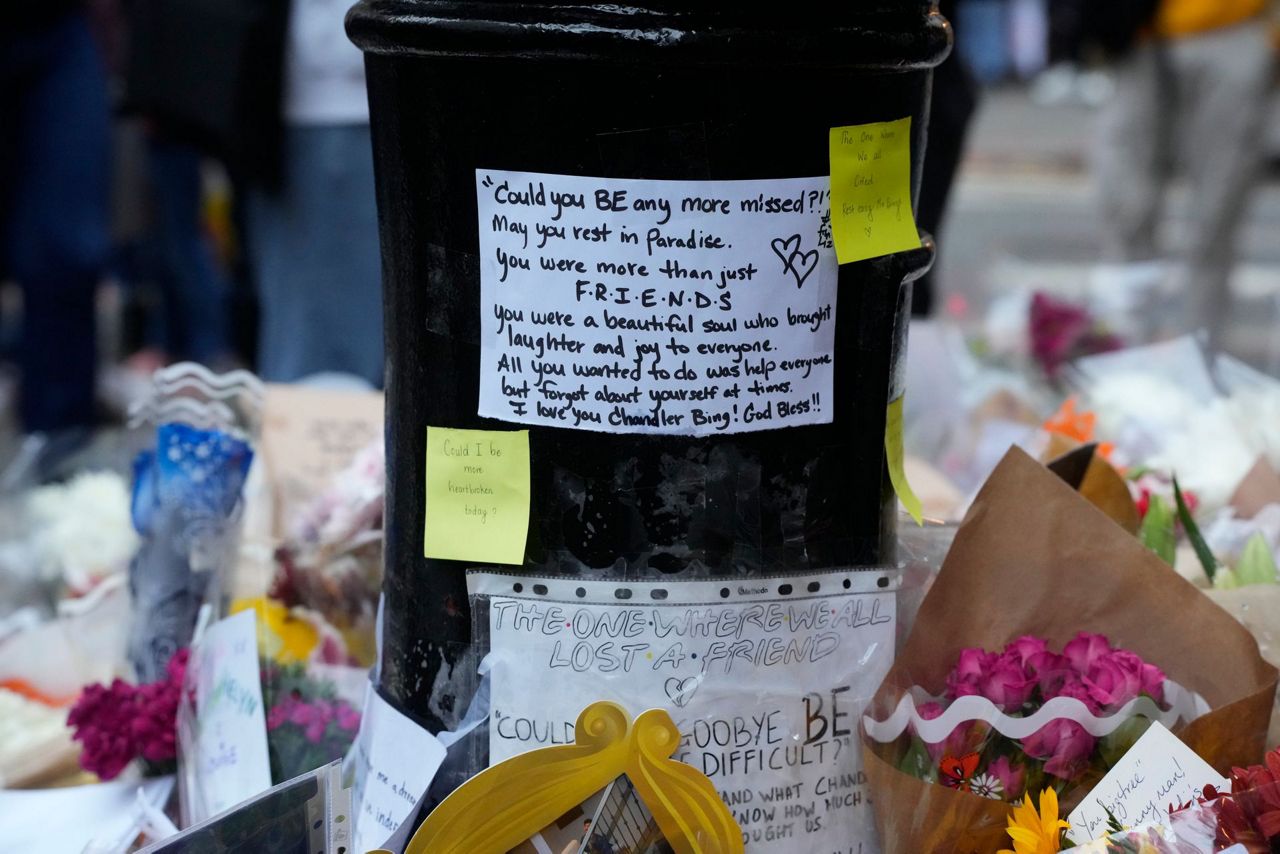 "Could you BE any more missed?!"
May you rest in Paradise.
You were more than just
F·R·I·E·N·D·S
you were a beautiful soul who brought
laughter and joy to everyone.
All you wanted to do was help everyone
but forgot about yourself at times.
I love you Chandler Bing! God Bless!!
The One Where
We all
Cried.
Rest easy Mr Bing
Could I be
more
heartbroken
today?
THE·ONE·WHERE·WE·ALL
LOST·A·FRIEND
"COULD GOODBYE BE
DIFFICULT?"
AND WHAT
KNOW HOW MUCH
US.
me a
"You
man!